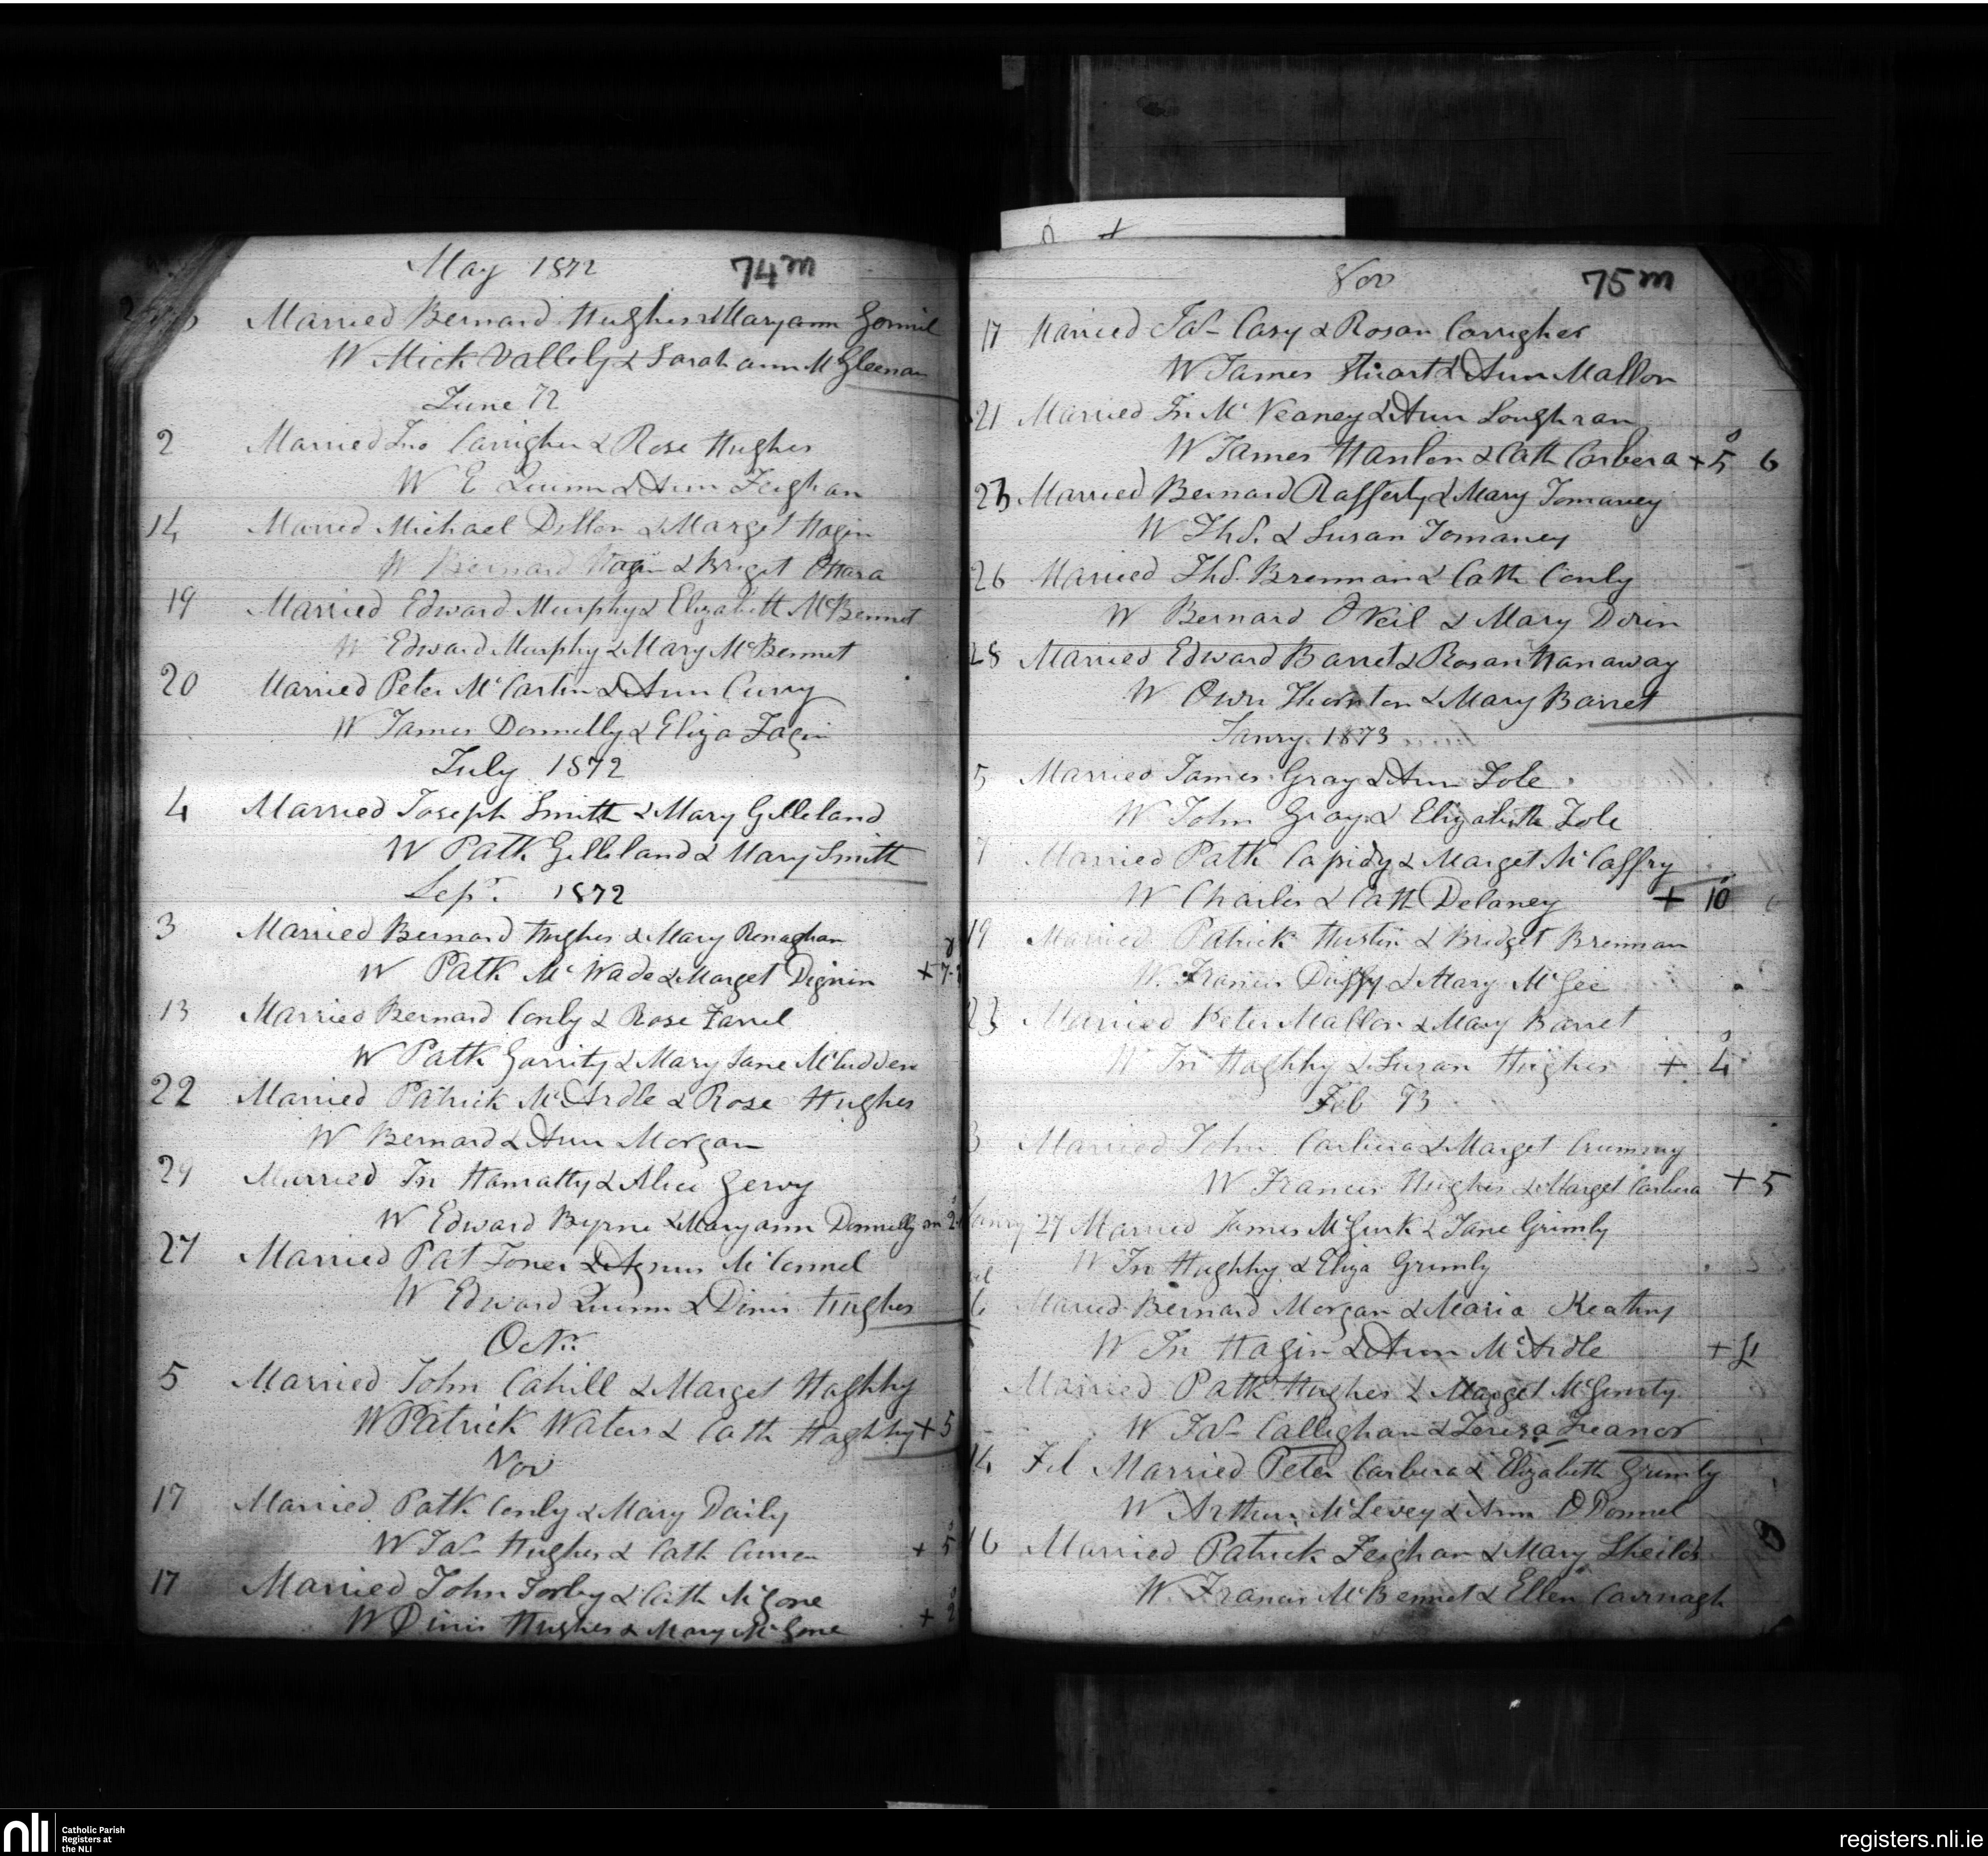 May 1872 74m
Married Bernard Hughes & Maryann Gormil
W Mick Vallely & Sarah ann McGleenan
June 72
2 Married Jno Carrigher & Rose Hughes
W E Quinn & Ann Feighan
14 Married Michael Dillon & Marget Hagin
W Bernard Hagin & Briget OHara
19 Married Edward Murphy & Elizabeth McBennet
W Edward Murphy & Mary McBennet
20 Married Peter McCartin & Ann Curry
W James Donnelly & Eliza Fagin
July 1872
4 Married Joseph Smith & Mary Gilleland
W Patk Gilleland & Mary Smith
Sepr. 1872
3 Married Bernard Hughes & Mary Renaghan
W Patk McWade & Marget Dignin + 7
13 Married Bernard Conly & Rose Farrel
W Patk Garrity & Mary Jane McCudden
22 Married Patrick McArdle & Rose Hughes
W Bernard & Ann Morgan
29 Married Jn Hamatty & Alice Gervy
W Edward Byrne & Maryann Donnelly
27 Married Pat Toner & Agnus McConnel
W Edward Quinn & Dinis Hughes
Octr.
5 Married John Cahill & Marget Haghhy
W Patrick Waters & Cath Haghhy + 5
Nov
17 Married Patk Conly & Mary Daily
W Jas Hughes & Cath + 5
17 Married John Torley & Cath McGone
W Dinis Hughes & Mary McGone + 2
Nov 75m
17 Married Jas Casy & Rosan Corrigher
W James Stuart & Ann Mallon
21 Married Jn McVeaney & Ann Loughran
W James Hanlon & Cath Corbera + 5 6
23 Married Bernard Rafferty & Mary Tomaney
W Ths. & Susan Tomaney
26 Married Ths. Brennan & Cath Conly
W Bernard ONeil & Mary Dorin
28 Married Edward Barret & Rosan Hanaway
W Own Thornton & Mary Barret
Janry. 1873
5 Married James Gray & Ann Tole
W John Gray & Elizabeth Tole
7 Married Patk Capidy & Marget McCaffry
W Charles & Cath Delaney + 10
19 Married Patrick Hustin & Bridget Brennan
W. Francis Duffy & Mary McGee
23 Married Peter Mallon & Mary Barret
W Jn Haghhy & Susan Hughes + 4
Feb 73
3 Married John Carbera & Marget Crummy
W Francis Hughes & Marget Carbera + 5
Janry 27 Married James McGurk & Jane Grimly
W Jn Haghhy & Eliza Grimly
6 Maried Bernard Morgan & Maria Keating
W Jn Hagin & Ann McArdle +
Married Patk Hughes & Marget McGinity
W Jas Callighan & Teresa Treanor
14 Feb Married Peter Carbera & Elizabeth Grimly
W Arthur McLevey & Ann ODonnel
16 Married Patrick Feighan & Mary Sheilds
W. Francis McBennet & Ellen Carnagh
nli
Catholic Parish
Registers at
the NLI
registers.nli.ie